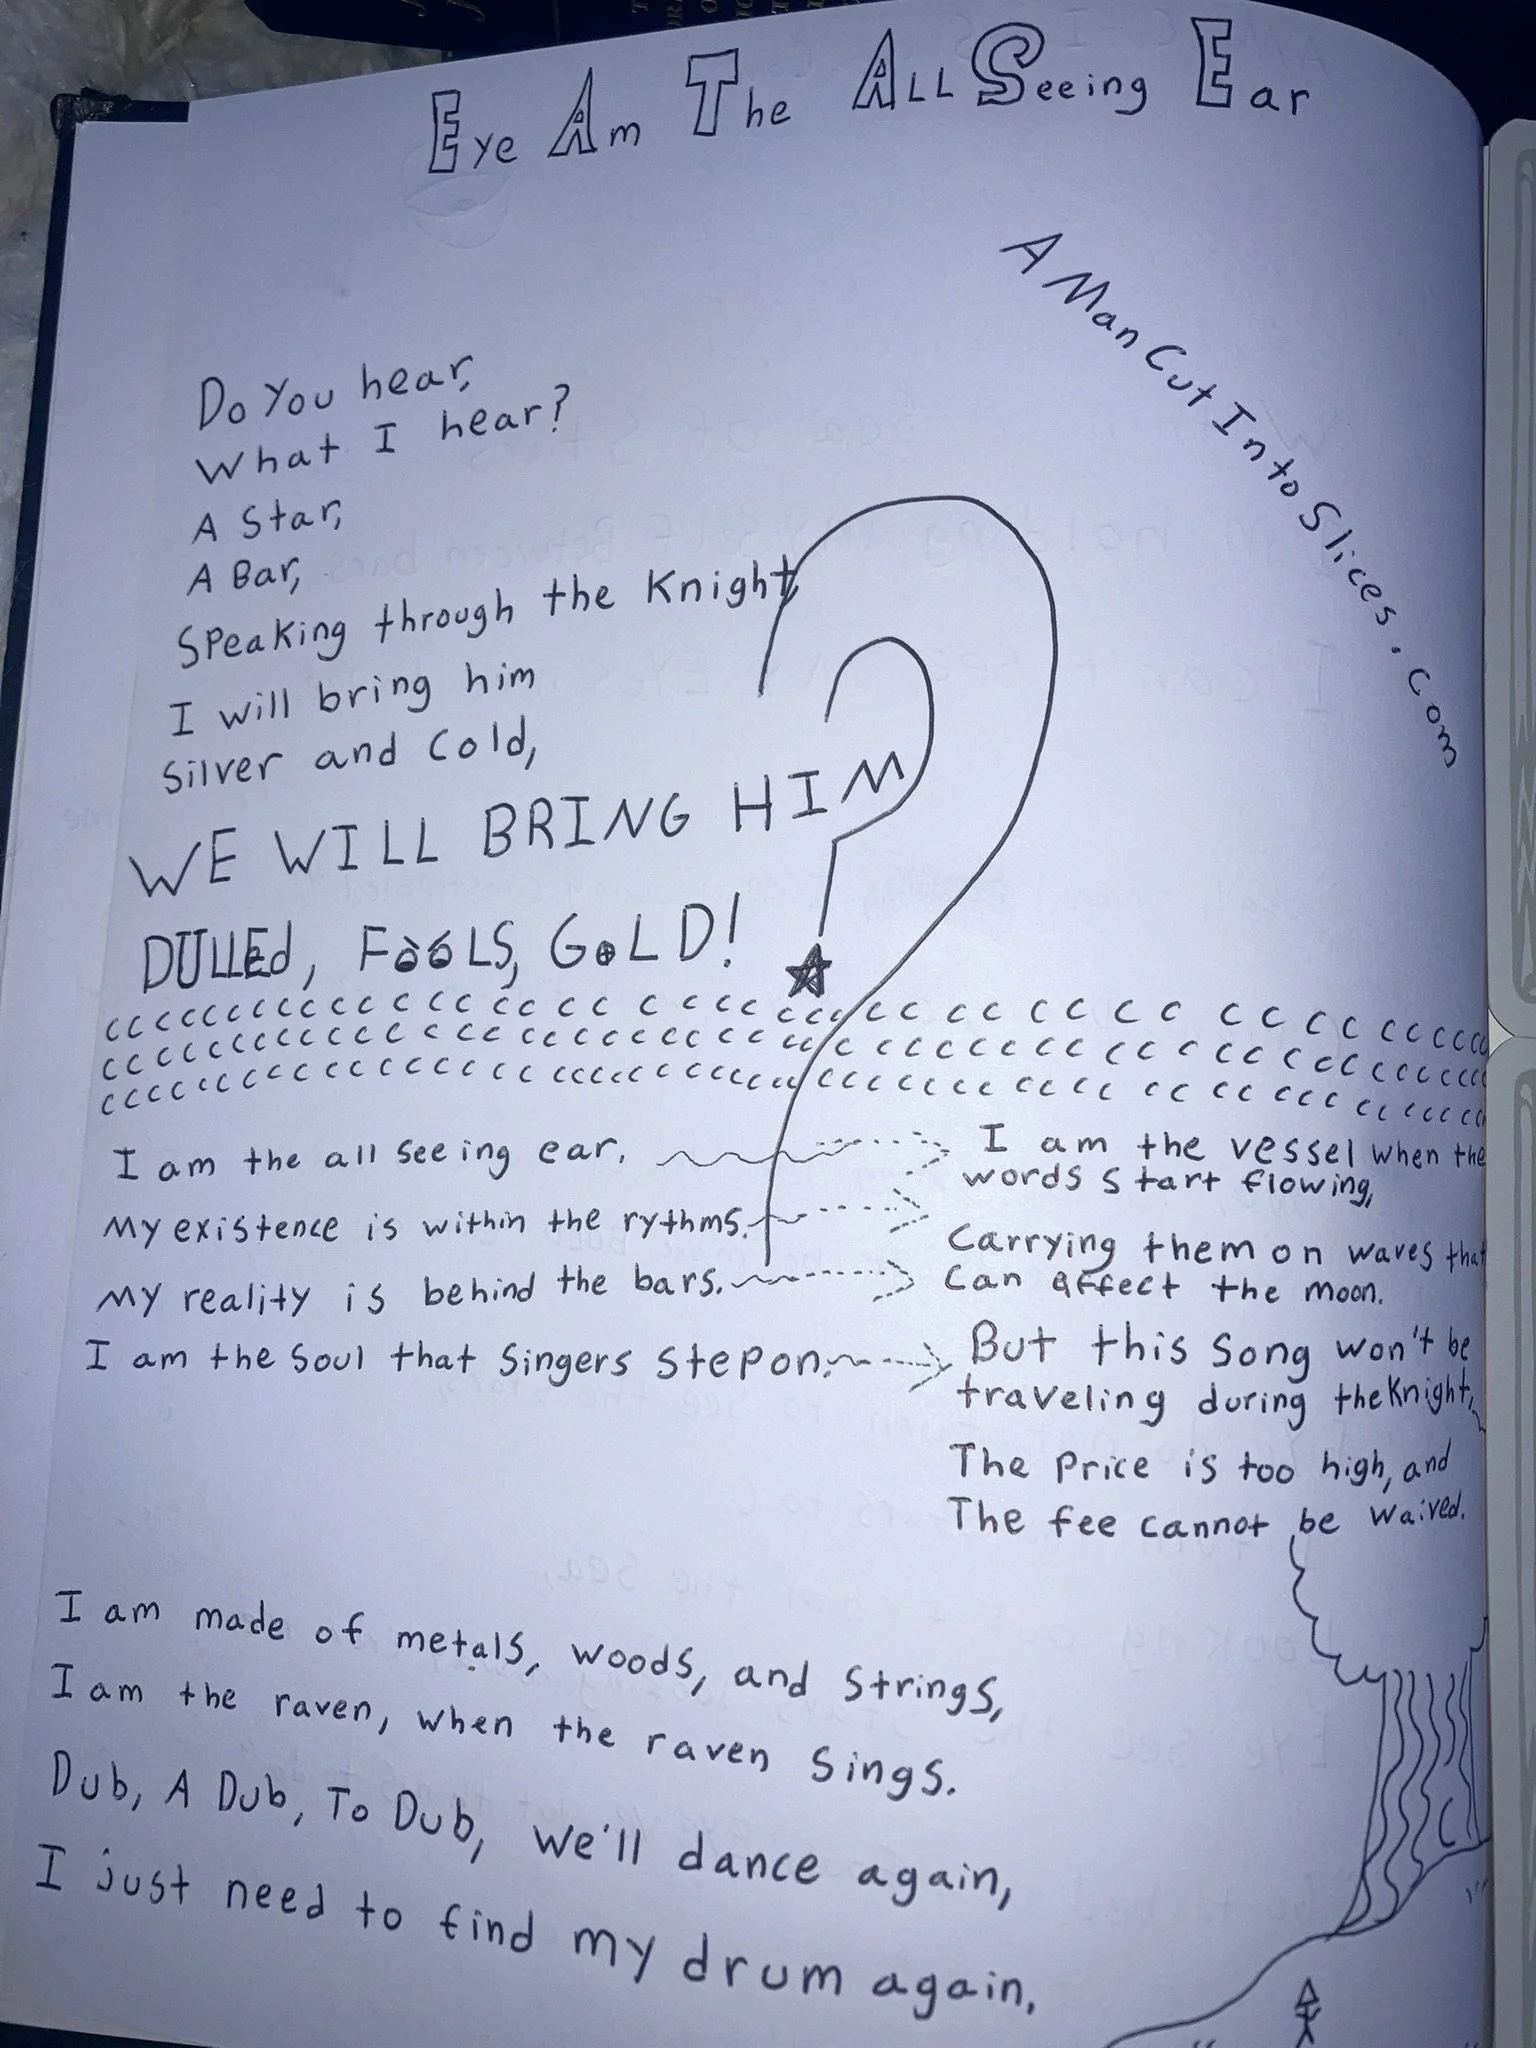 Eye Am The All Seeing Ear
A Man Cut Into Slices.com
Do You hear,
What I hear?
A Star,
A Bar,
Speaking through the Knight,
I will bring him
Silver and Cold,
WE WILL BRING HIM
DULLEd, FooLS, GoLD!
I am the all seeing ear.
My existence is within the rythms.
My reality is behind the bars.
I am the Soul that Singers Step on.
I am the vessel when the
words start flowing,
Carrying them on waves that
Can affect the moon.
But this Song won't be
traveling during the Knight,
The Price is too high, and
The fee cannot be waived.
I am made of metals, woods, and Strings,
I am the raven, when the raven Sings.
Dub, A Dub, To Dub, we'll dance again,
I just need to find my drum again,